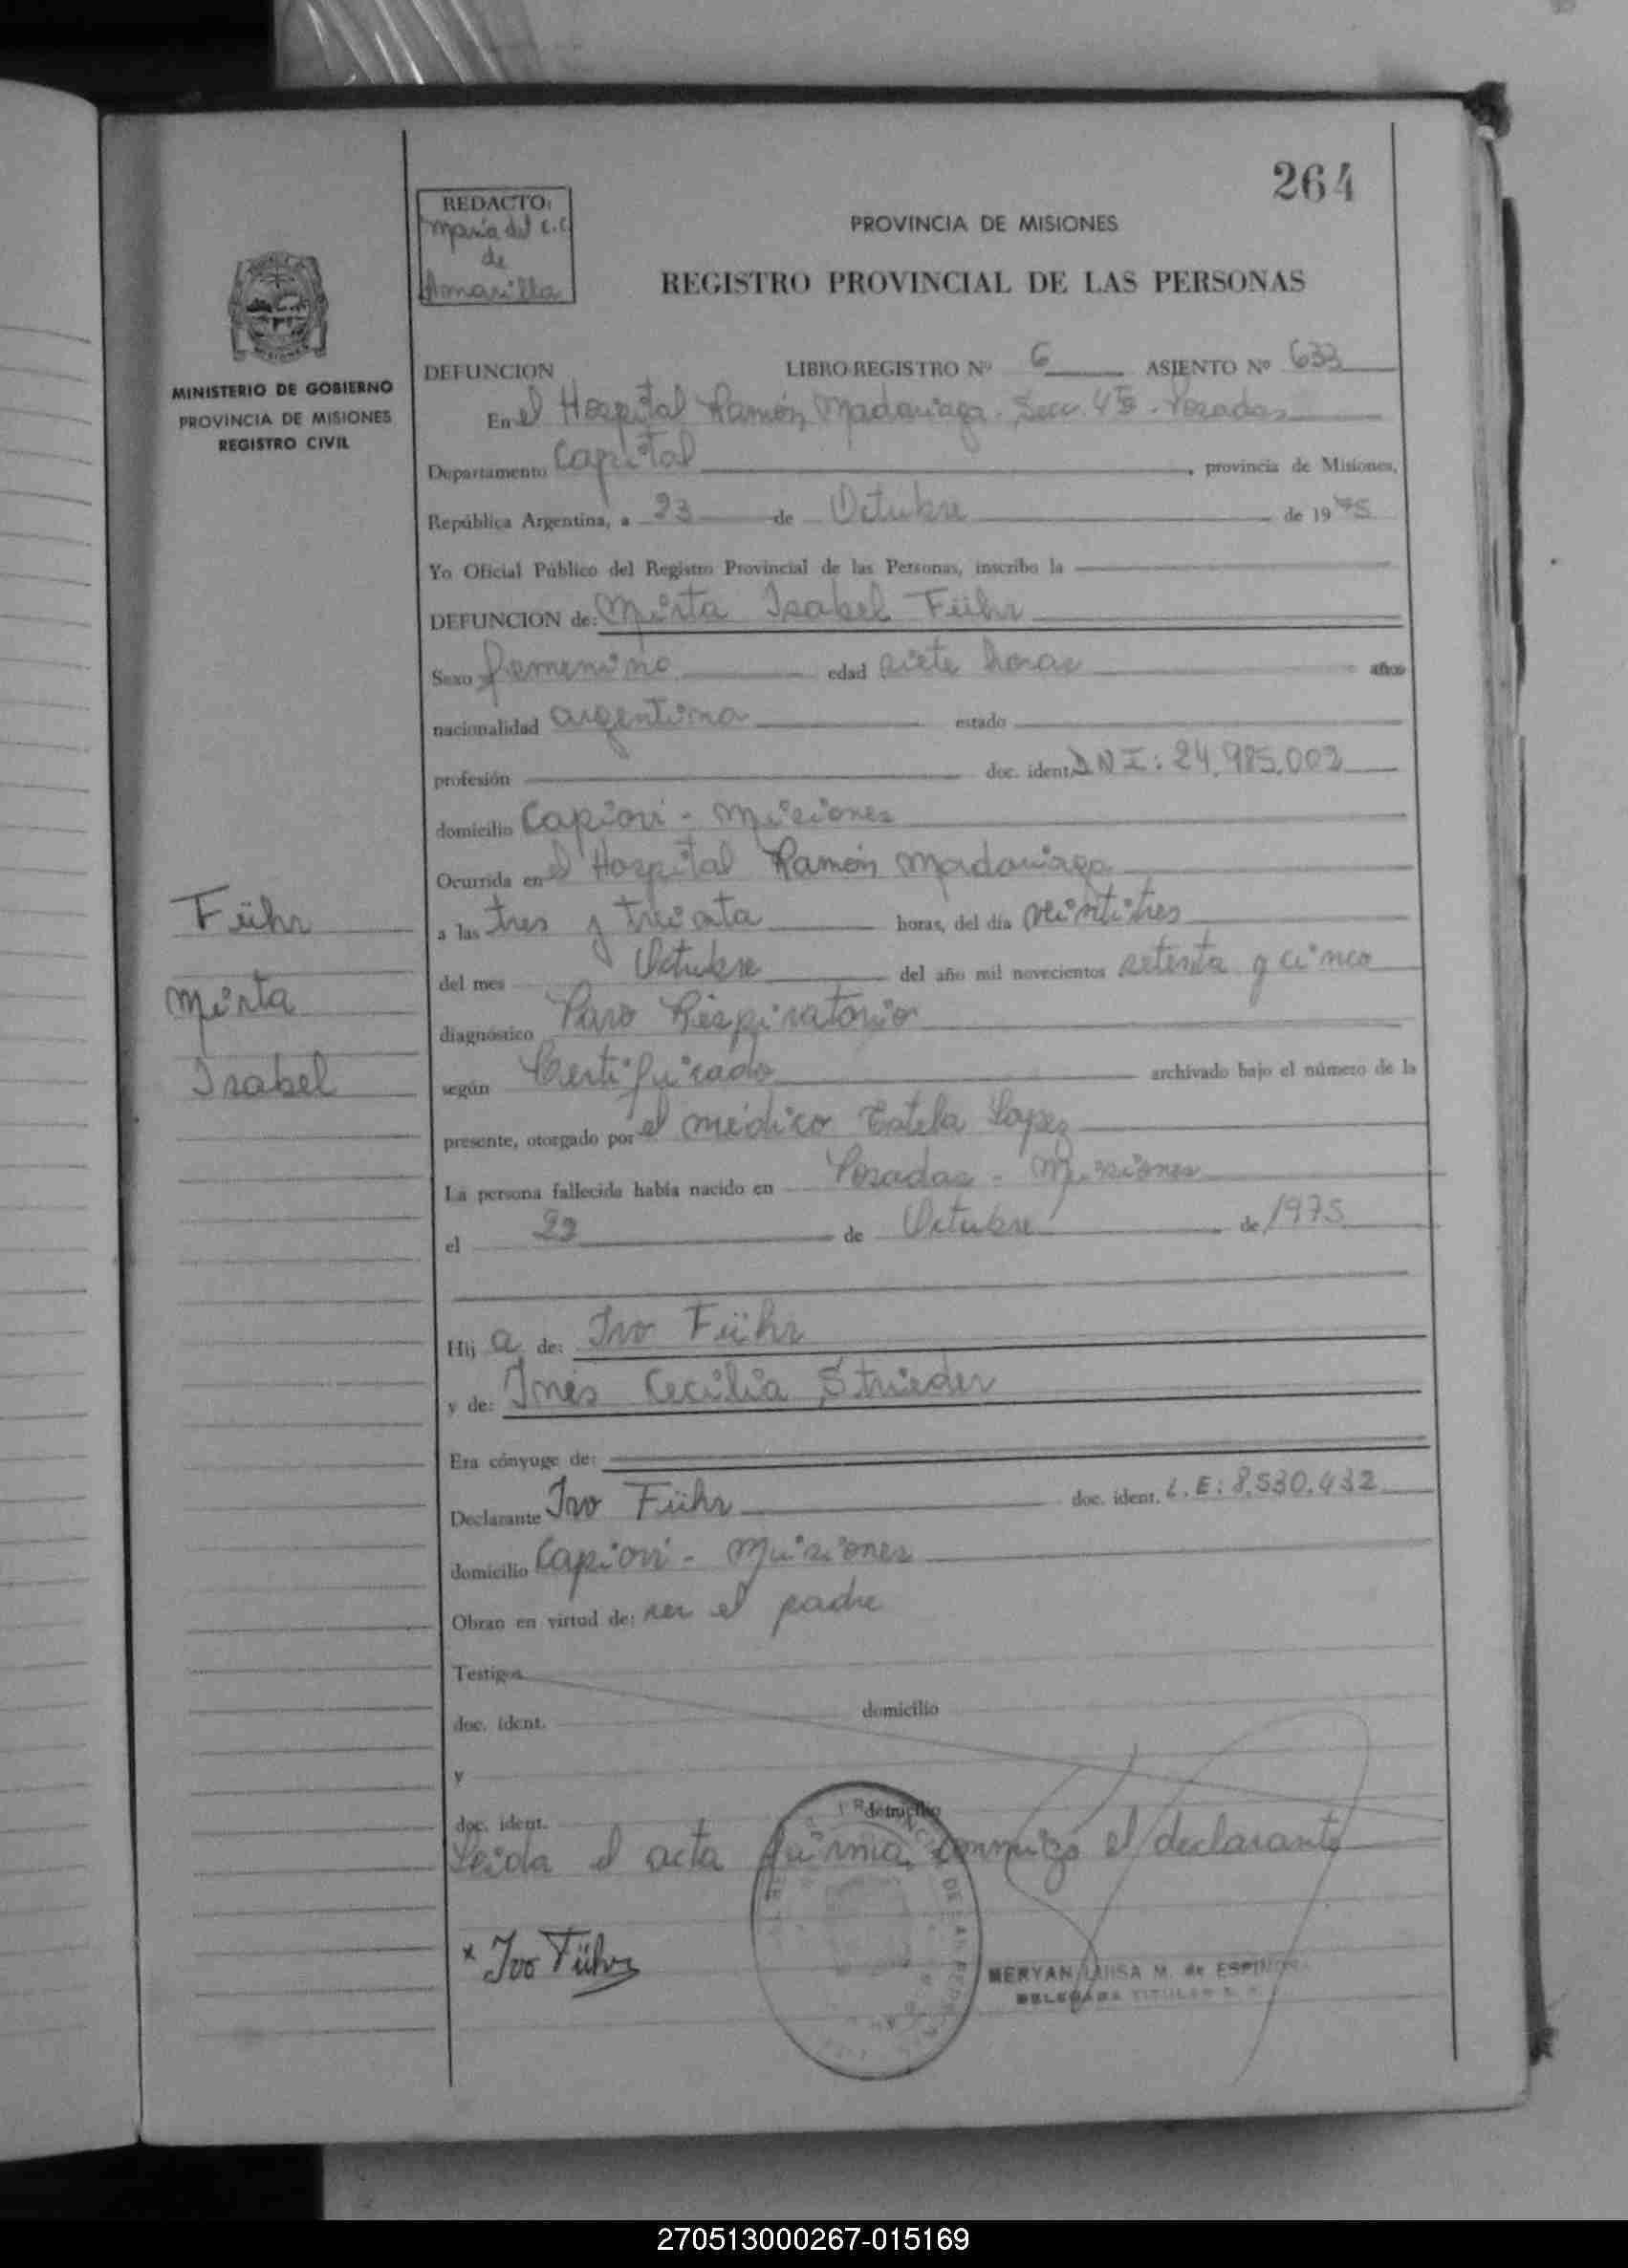 264
REDACTO:
María del C.C.
de
Amarilla
PROVINCIA DE MISIONES
REGISTRO PROVINCIAL DE LAS PERSONAS
MINISTERIO DE GOBIERNO
PROVINCIA DE MISIONES
REGISTRO CIVIL
DEFUNCION LIBRO REGISTRO Nº 6 ASIENTO Nº 633
En el Hospital Ramón Madariaga. Secc. 4ta - Posadas
Departamento Capital, provincia de Misiones,
República Argentina, a 23 de Octubre de 1975
Yo Oficial Público del Registro Provincial de las Personas, inscribo la
DEFUNCION de: Mirta Isabel Führ
Sexo femenino edad siete horas años
nacionalidad argentina estado
profesión doc. ident. DNI: 24.985.002
domicilio Capioví - Misiones
Ocurrida en el Hospital Ramón Madariaga
a las tres y treinta horas, del día veintitres
del mes Octubre del año mil novecientos setenta y cinco
diagnóstico Paro Respiratorio
según Certificado archivado bajo el número de la
presente, otorgado por el médico Estela Lopez
La persona fallecida había nacido en Posadas - Misiones
el 22 de Octubre de 1975
Hij a de: Ivo Führ
y de: Inés Cecilia Strieder
Era cónyuge de:
Declarante Ivo Führ doc. ident. L.E: 8.530.432
domicilio Capioví - Misiones
Obran en virtud de: ser el padre
Testigos
doc. ident. domicilio
y
doc. ident. domicilio
Leida el acta firma conmigo el declarante
Führ
Mirta
Isabel
x Ivo Führ
MERYAN LUISA M. de ESPINOSA
DELEGADA TITULAR
270513000267-015169